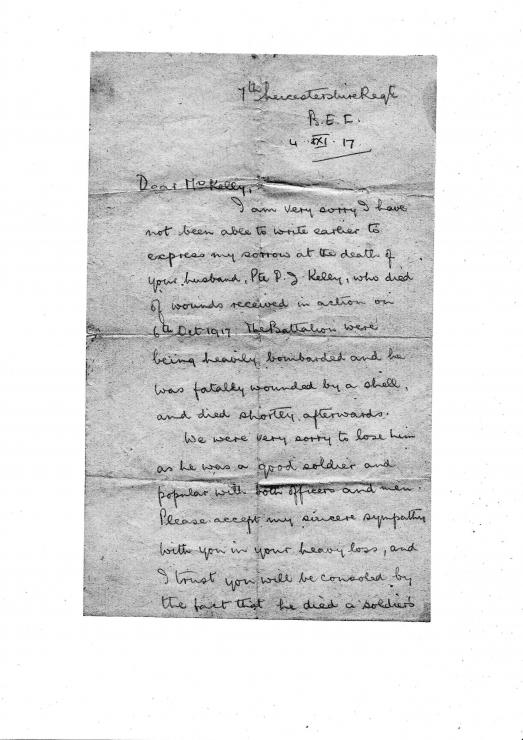 7th Leicestershire Regt
B.E.F.
4 XI 17
Dear Mrs Kelly,
I am very sorry I have
not been able to write earlier to
express my sorrow at the death of
your husband, Pte P. J. Kelly, who died
of wounds received in action on
6th Oct 1917. The Battalion were
being heavily bombarded and he
was fatally wounded by a shell,
and died shortly afterwards.
We were very sorry to lose him
as he was a good soldier and
popular with both officers and men.
Please accept my sincere sympathy
with you in your heavy loss, and
I trust you will be consoled by
the fact that he died a soldier's